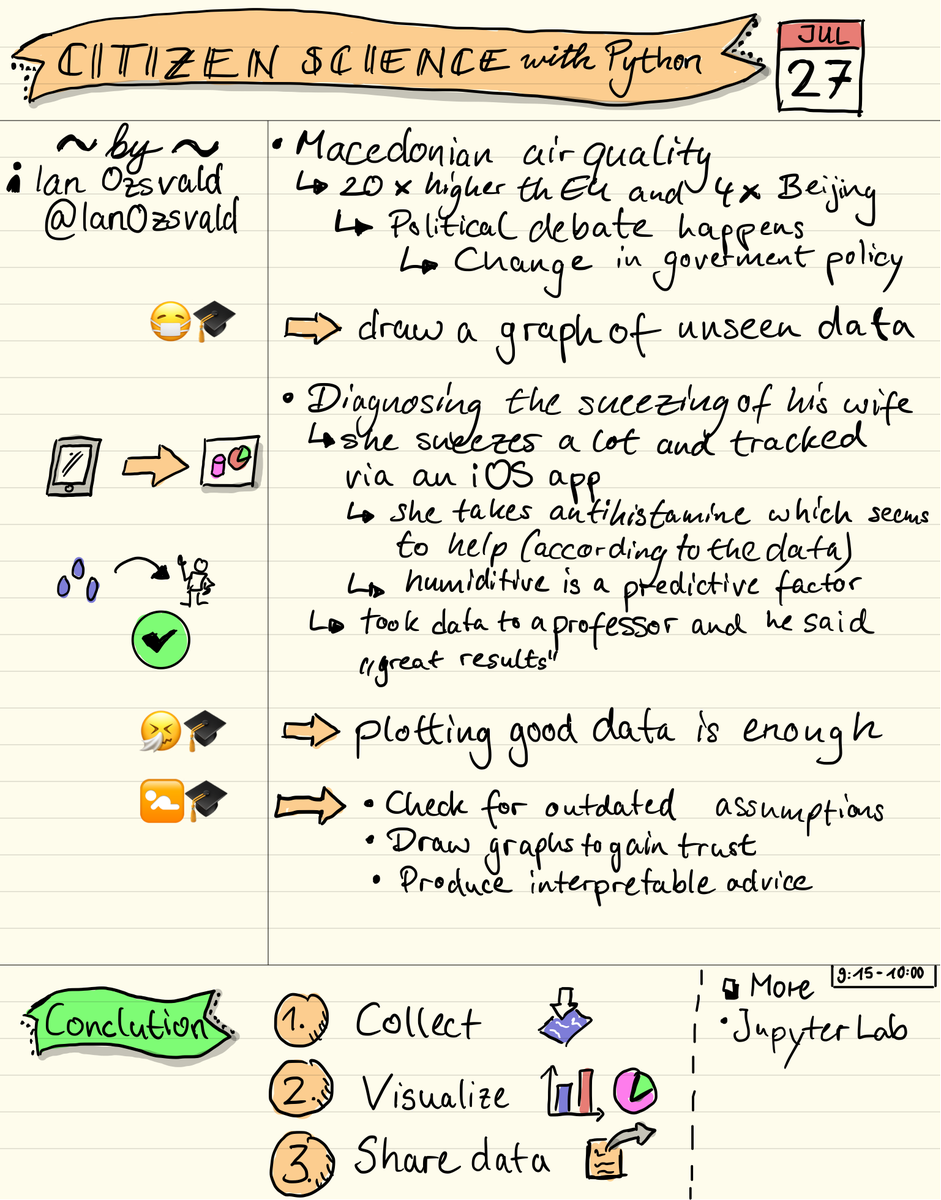 CITIZEN SCIENCE with Python
JUL
27
~ by ~
Ian Ozsvald
@IanOzsvald
• Macedonian air quality
↳ 20 x higher th EU and 4x Beijing
↳ Political debate happens
↳ Change in goverment policy
⇨ draw a graph of unseen data
• Diagnosing the sneezing of his wife
↳ she sneezes a lot and tracked
via an iOS app
↳ she takes antihistamine which seems
to help (according to the data)
↳ humiditive is a predictive factor
↳ took data to a professor and he said
„great results"
⇨ plotting good data is enough
⇨ • Check for outdated assumptions
• Draw graphs to gain trust
• Produce interpretable advice
Conclution
1. Collect
2. Visualize
3. Share data
9:15-10:00
More
• Jupyter Lab